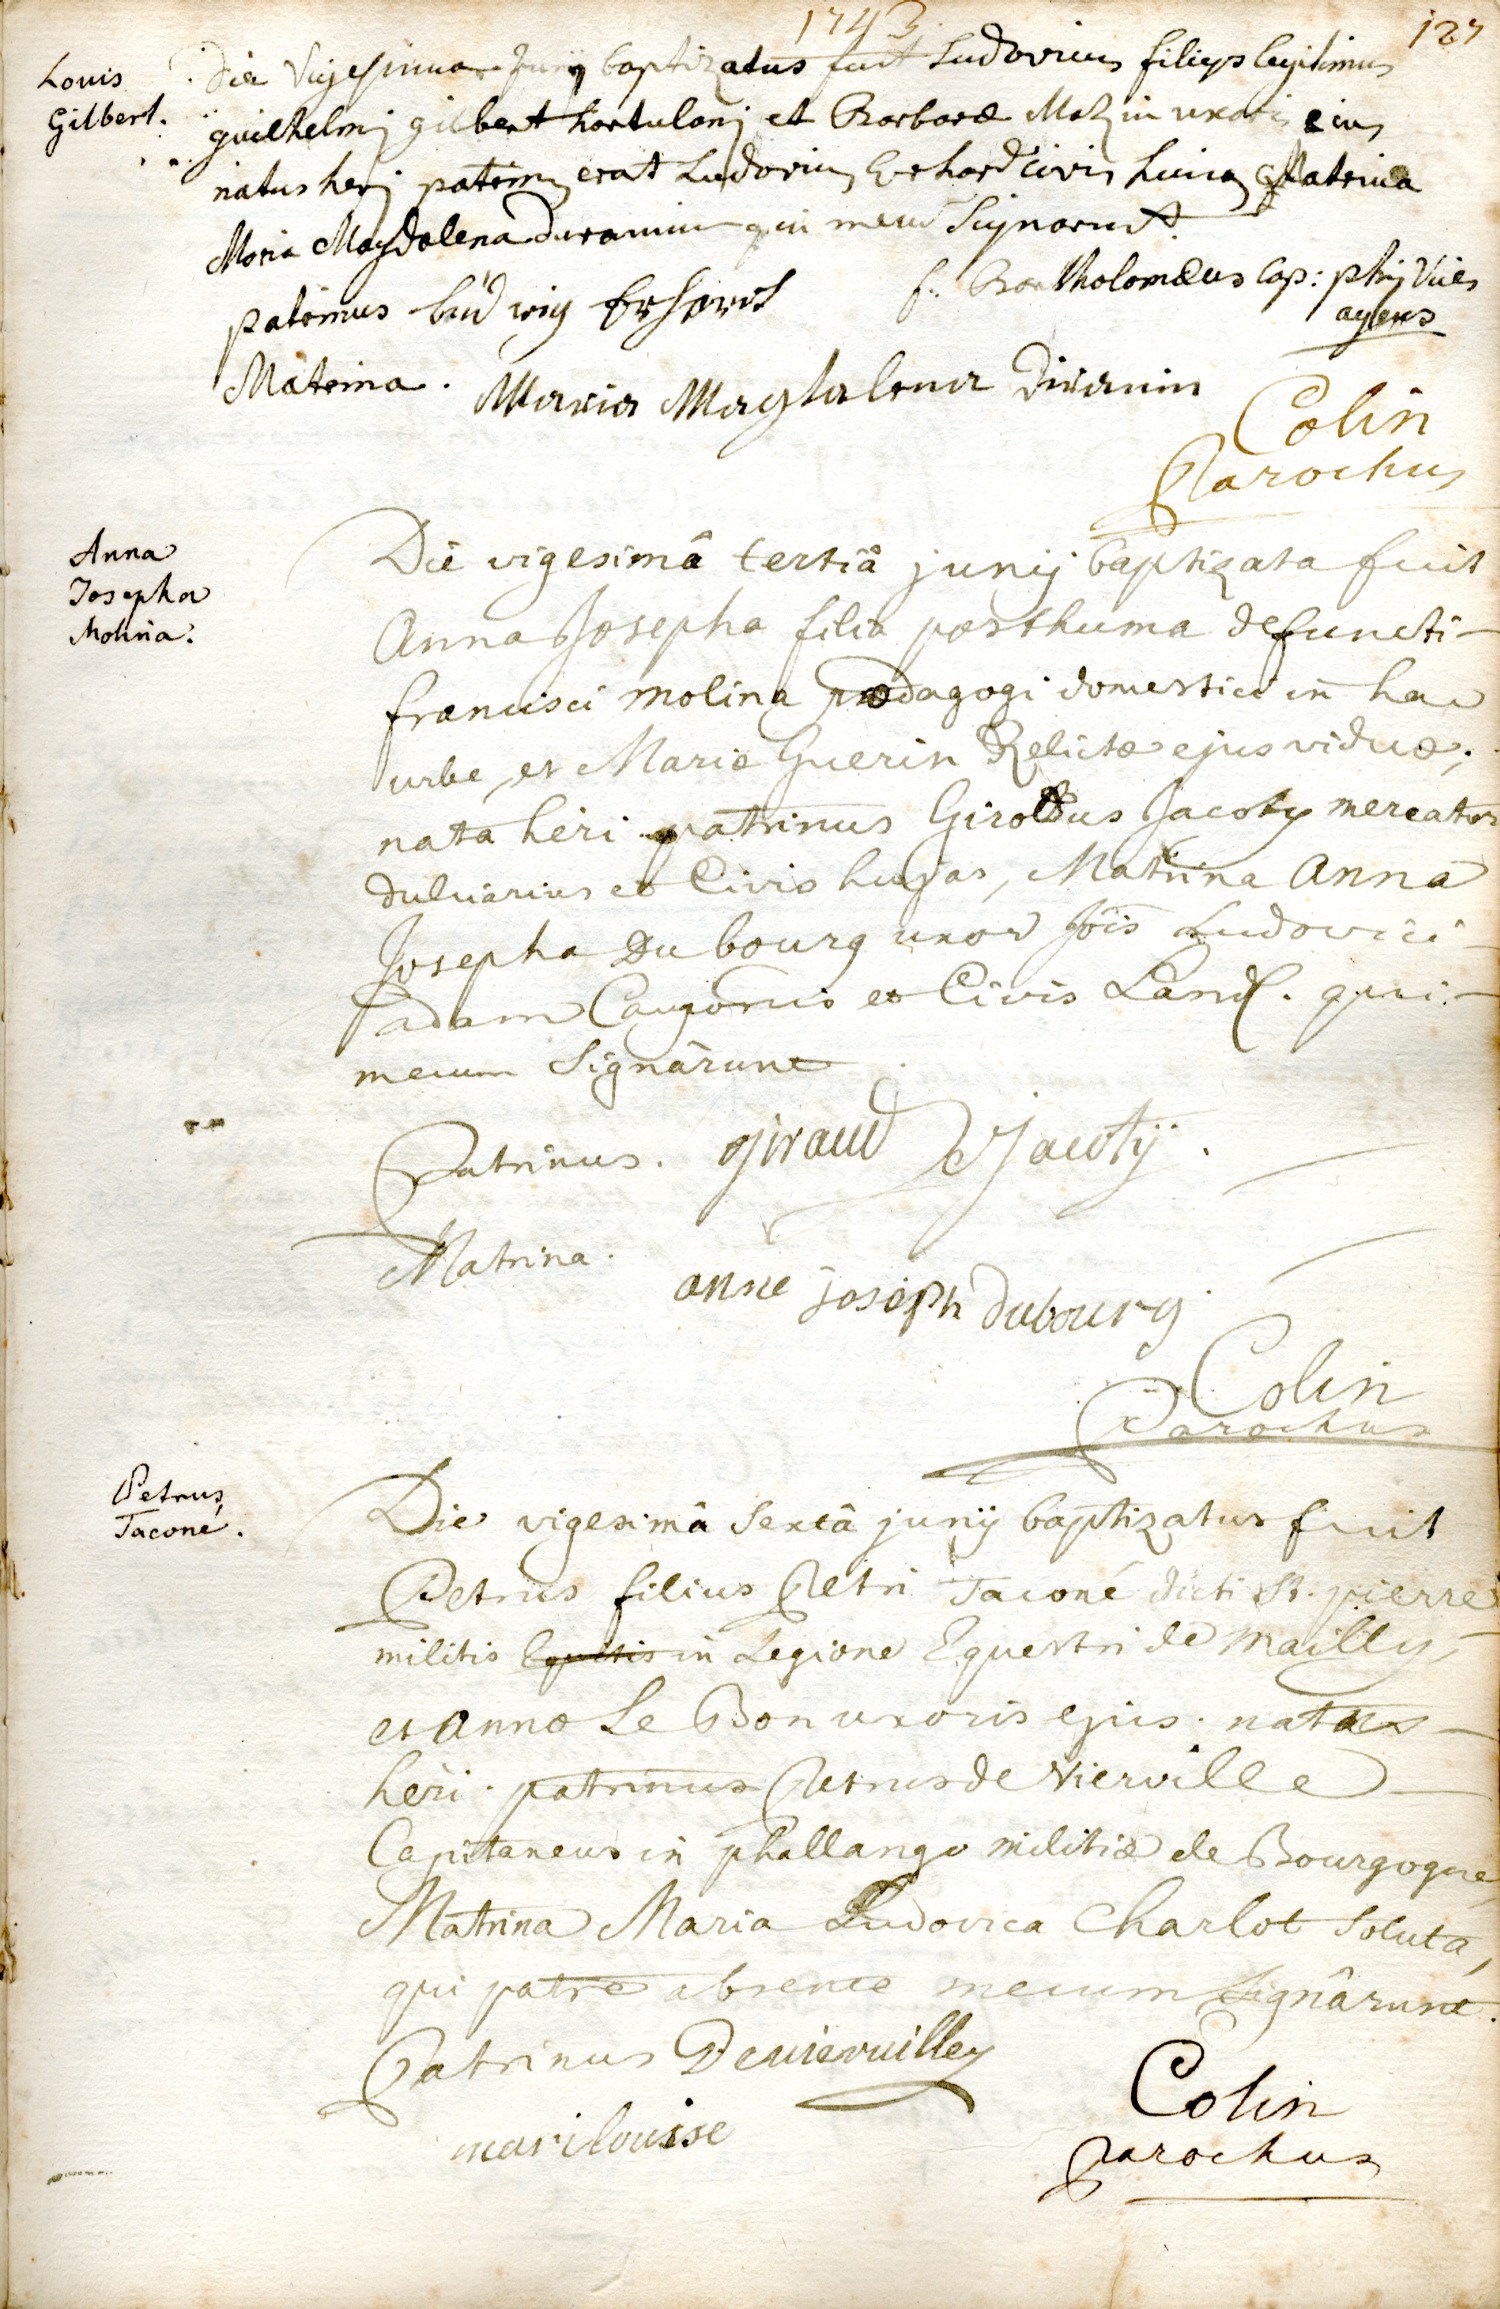 1743
127
Louis
Gilbert.
Die Vigesima Junij baptizatus fuit Ludovicus filius legitimus
guilhelmj gilbert hortulanj et Barbaræ Motzin uxoris eius
natus herj patrinus erat Ludovicus Erhard civis huius Matrina
Maria Magdalena Duranin qui mecum Signarunt
f. Bartholomæus Cap: Vices
agens
patrinus Ludwig Erhardt
Matrina. Maria Magdalena Duranin
Colin
Parochus
Anna
Josepha
Molina.
Die vigesimâ tertiâ junij baptizata fuit
Anna Josepha filia posthuma defuncti
francisci Molina pædagogi domestici in hac
urbe, et Mariæ Guerin Relictæ ejus viduæ,
nata heri patrinus Giroldus Jacoty mercator
dulciarius et Civis hujas, Matrina Anna
Josepha Du bourg uxor Jois Ludovici
adam et Civis Land. qui
mecum Signârunt
Patrinus. giraud Jacotÿ.
Matrina. anne joseph dubourg
Colin
Parochus
Petrus
Taconé.
Die vigesimâ Sextâ junij baptizatus fuit
Petrus filius Petri Taconé dicti St. pierre
militis Equitis in Legione Equestri de Mailly,
et annæ Le Bon uxoris ejus. natus
heri. patrinus Petrus de Vierville
Capitaneus in phallange militiæ de Bourgogne,
Matrina Maria Ludovica Charlot Soluta,
qui patre absente mecum Signârunt.
Patrinus Devierville
mari louisse
Colin
Parochus